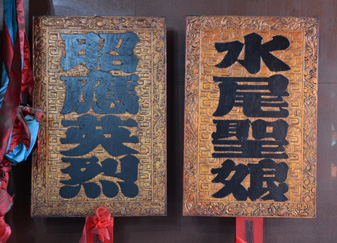 水尾聖娘
昭應英烈